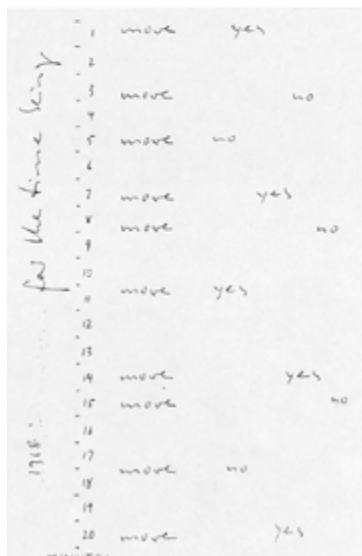 for the time being
1968
1 move yes
2
3 move no
4
5 move no
6
7 move yes
8 move no
9
10
11 move yes
12
13
14 move yes
15 move no
16
17
18 move no
19
20 move yes